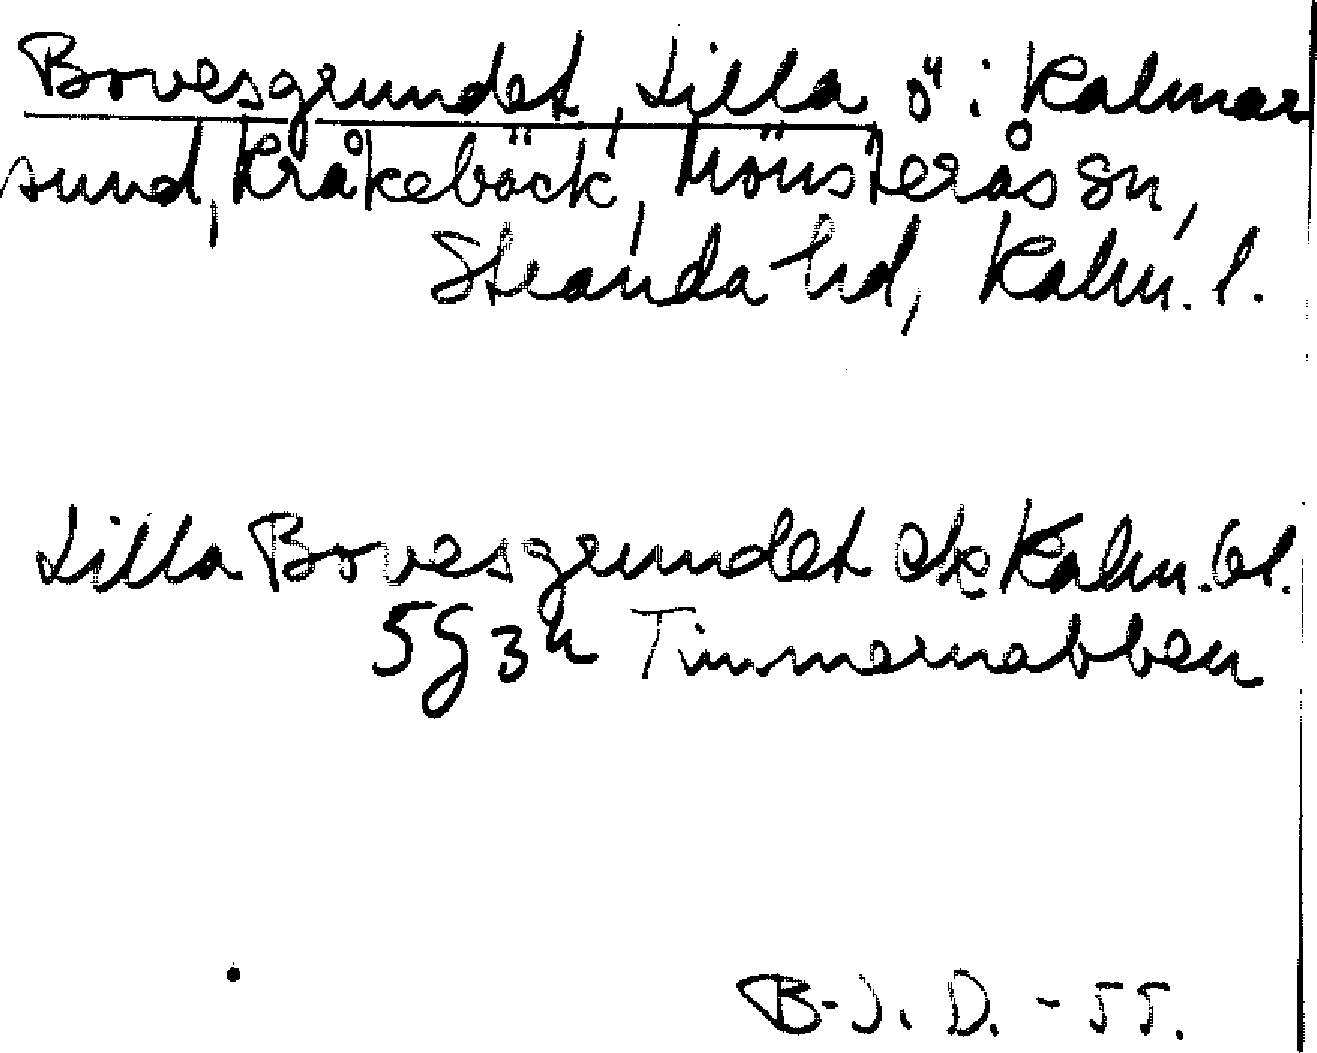 Bovesgrundet, Lilla ö i Kalmar
sund, Kråkebäck, Mönsterås sn,
Stranda hd, Kalm. l.
Lilla Bovesgrundet ek Kalm. öl.
5g3h Timmernabben
B-J. D. -55.